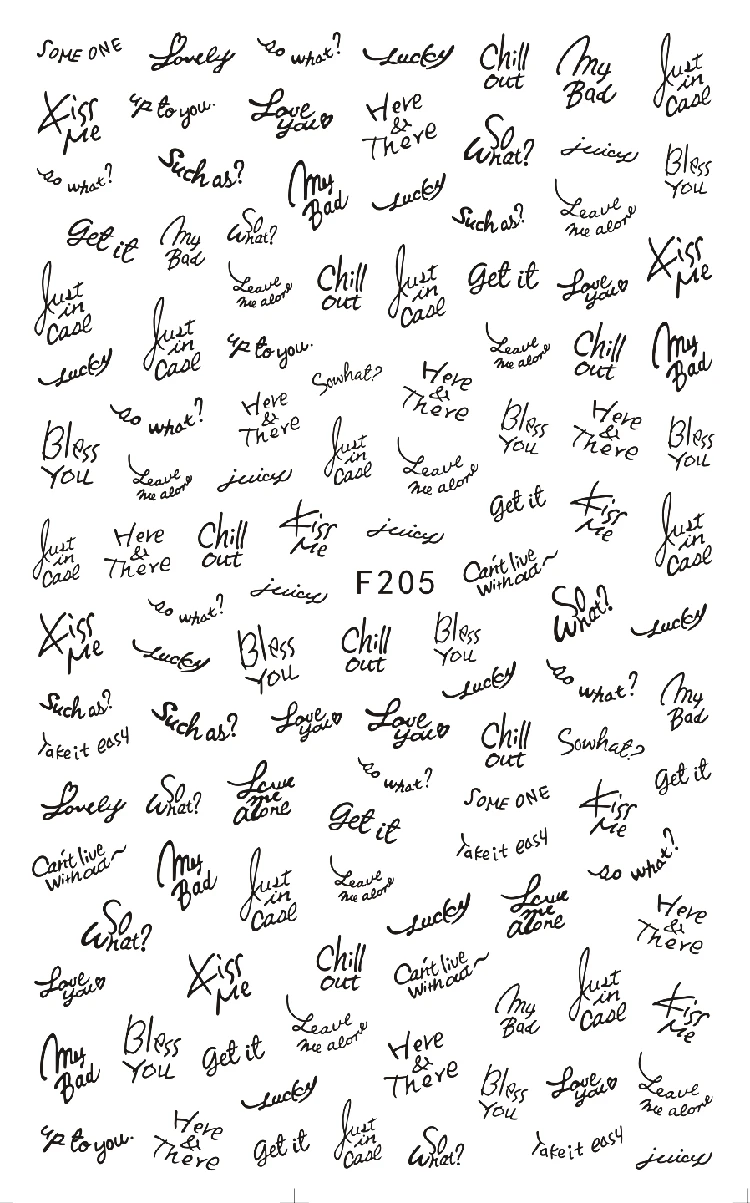 SOME ONE
Lovely
So what?
Lucky
Chill
out
My
Bad
Just
in
Case
Kiss
Me
up to you.
Love
you
Here
&
There
So
What?
juicy
Bless
YOU
So what?
Such as?
My
Bad
Lucky
Such as?
Leave
me alone
Get it
My
Bad
So
What?
Just
in
Case
Leave
me alone
Chill
out
Just
in
Case
Get it
Love
you
Kiss
Me
Just
in
Case
up to you.
Leave
me alone
Chill
out
My
Bad
Lucky
So what?
Here
&
There
Sowhat?
Here
&
There
Bless
YOU
Here
&
There
Bless
YOU
Bless
YOU
Leave
me alone
juicy
Just
in
Case
Leave
me alone
Get it
Kiss
Me
Just
in
Case
Just
in
Case
Here
&
There
Chill
out
Kiss
Me
juicy
Can't live
Without~
juicy
F205
So what?
So
What?
Lucky
Kiss
Me
Lucky
Bless
YOU
Chill
out
Bless
YOU
Lucky
So what?
My
Bad
Such as?
Such as?
Love
you
Love
you
Chill
out
Sowhat?
Take it easy
Get it
Lovely
So
What?
Leave
me
alone
So what?
Get it
SOME ONE
Kiss
Me
Take it easy
Can't live
Without~
My
Bad
Just
in
Case
Leave
me alone
So what?
Lucky
Leave
me
alone
Here
&
There
So
What?
Love
you
Kiss
Me
Chill
out
Can't live
Without~
My
Bad
Just
in
Case
Kiss
Me
My
Bad
Bless
YOU
Get it
Leave
me alone
Here
&
There
Bless
YOU
Love
you
Leave
me alone
Lucky
up to you.
Here
&
There
Get it
Just
in
Case
So
What?
Take it easy
juicy